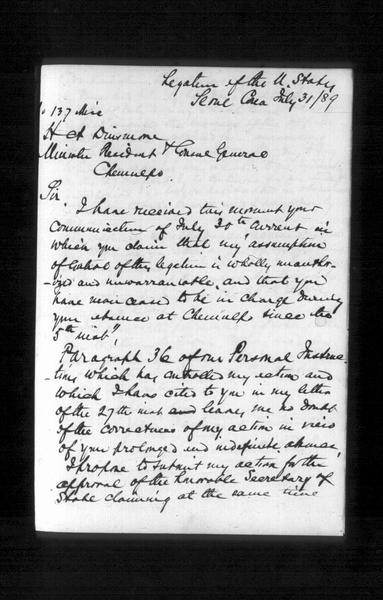 Legation of the U. States
Seoul Corea July 31/89
No 137 Misc
H A Dinsmore
Minister Resident & Consul General
Chemulpo
Sir
I have received this moment your
communication of July 30th current in
which you claim that my assumption
of control of this legation is wholly unautho-
-rized and unwarrantable, and that you
have never ceased to be in charge during
your absence at Chemulpo since the
5th inst",
Paragraph 36 of our Personal Instruc-
-tions which has controlled my action and
which I have cited to you in my letter
of the 27th inst and leaves me no doubt
of the correctness of my action in view
of your prolonged and indefinite absence,
I propose to submit my action for the
approval of the honorable Secretary of
State claiming at the same time